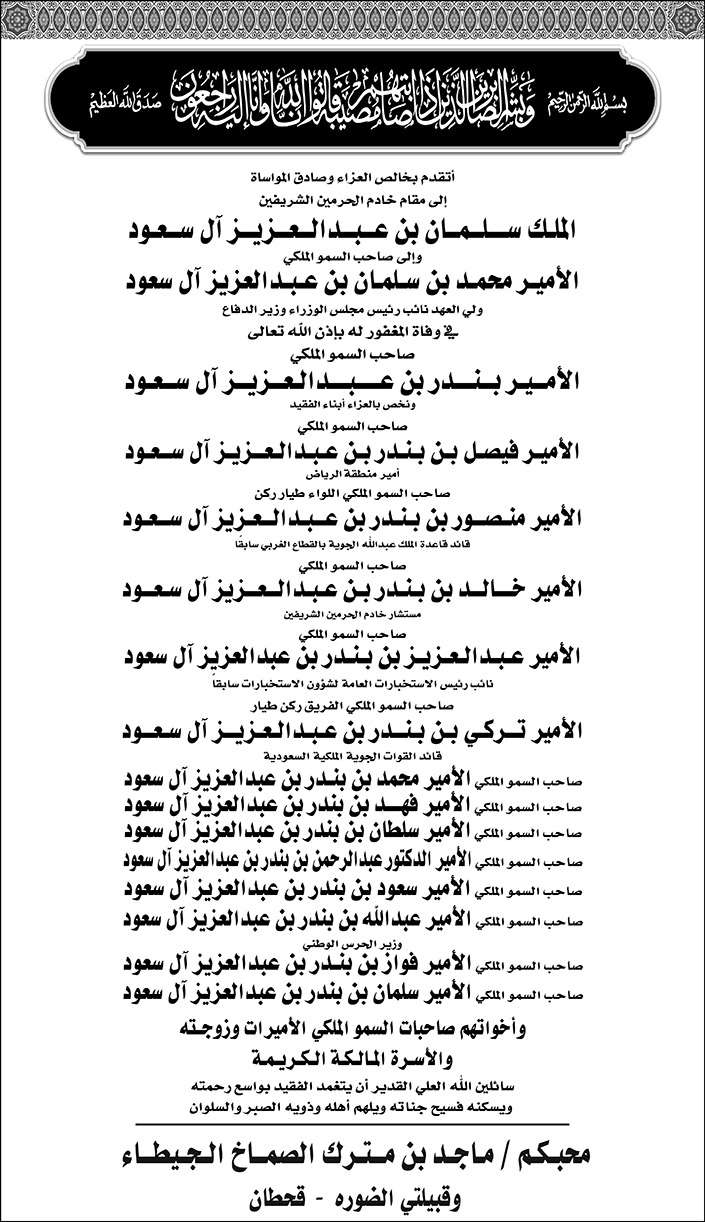 بسم الله الرحمن الرحيم
وبشر الصابرين الذين إذا أصابتهم مصيبة قالوا إنا لله وإنا إليه راجعون
صدق الله العظيم
أتقدم بخالص العزاء وصادق المواساة
إلى مقام خادم الحرمين الشريفين
الملك سلمان بن عبدالعزيز آل سعود
وإلى صاحب السمو الملكي
الأمير محمد بن سلمان بن عبدالعزيز آل سعود
ولي العهد نائب رئيس مجلس الوزراء وزير الدفاع
في وفاة المغفور له بإذن الله تعالى
صاحب السمو الملكي
الأمير بندر بن عبدالعزيز آل سعود
ونخص بالعزاء أبناء الفقيد
صاحب السمو الملكي
الأمير فيصل بن بندر بن عبدالعزيز آل سعود
أمير منطقة الرياض
صاحب السمو الملكي اللواء طيار ركن
الأمير منصور بن بندر بن عبدالعزيز آل سعود
قائد قاعدة الملك عبدالله الجوية بالقطاع الغربي سابقًا
صاحب السمو الملكي
الأمير خالد بن بندر بن عبدالعزيز آل سعود
مستشار خادم الحرمين الشريفين
صاحب السمو الملكي
الأمير عبدالعزيز بن بندر بن عبدالعزيز آل سعود
نائب رئيس الاستخبارات العامة لشؤون الاستخبارات سابقاً
صاحب السمو الملكي الفريق ركن طيار
الأمير تركي بن بندر بن عبدالعزيز آل سعود
قائد القوات الجوية الملكية السعودية
صاحب السمو الملكي الأمير محمد بن بندر بن عبدالعزيز آل سعود
صاحب السمو الملكي الأمير فهد بن بندر بن عبدالعزيز آل سعود
صاحب السمو الملكي الأمير سلطان بن بندر بن عبدالعزيز آل سعود
صاحب السمو الملكي الأمير الدكتور عبدالرحمن بن بندر بن عبدالعزيز آل سعود
صاحب السمو الملكي الأمير سعود بن بندر بن عبدالعزيز آل سعود
صاحب السمو الملكي الأمير عبدالله بن بندر بن عبدالعزيز آل سعود
وزير الحرس الوطني
صاحب السمو الملكي الأمير فواز بن بندر بن عبدالعزيز آل سعود
صاحب السمو الملكي الأمير سلمان بن بندر بن عبدالعزيز آل سعود
وأخواتهم صاحبات السمو الملكي الأميرات وزوجته
والأسرة المالكة الكريمة
سائلين الله العلي القدير أن يتغمد الفقيد بواسع رحمته
ويسكنه فسيح جناته ويلهم أهله وذويه الصبر والسلوان
محبكم / ماجد بن مترك الصماخ الجيطاء
وقبيلتي الضوره - قحطان